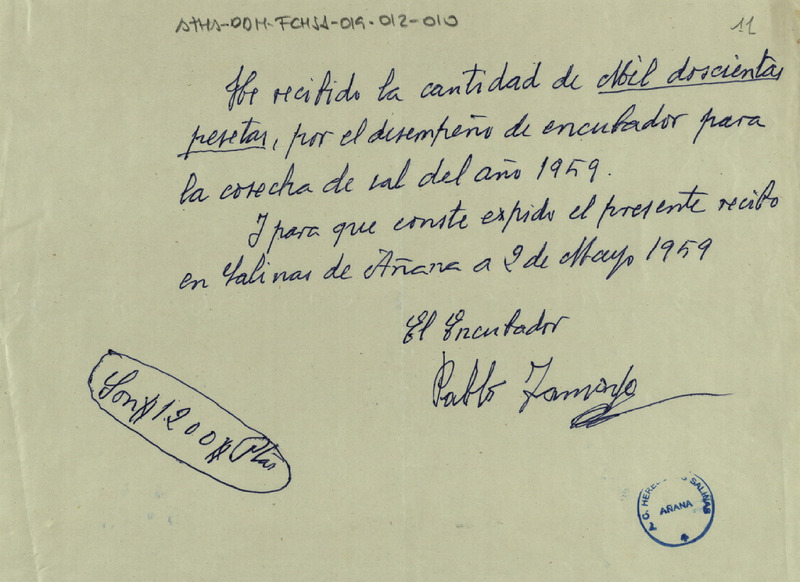 ATHA-DDM-FCHSA-019-012-010
11
He recibido la cantidad de Mil doscientas
pesetas, por el desempeño de encubador para
la cosecha de sal del año 1959.
I para que conste expido el presente recibo
en Salinas de Añana a 2 de Mayo 1959
El Encubador
Pablo Tamayo
Son #1200# Ptas
SALINAS
AÑANA